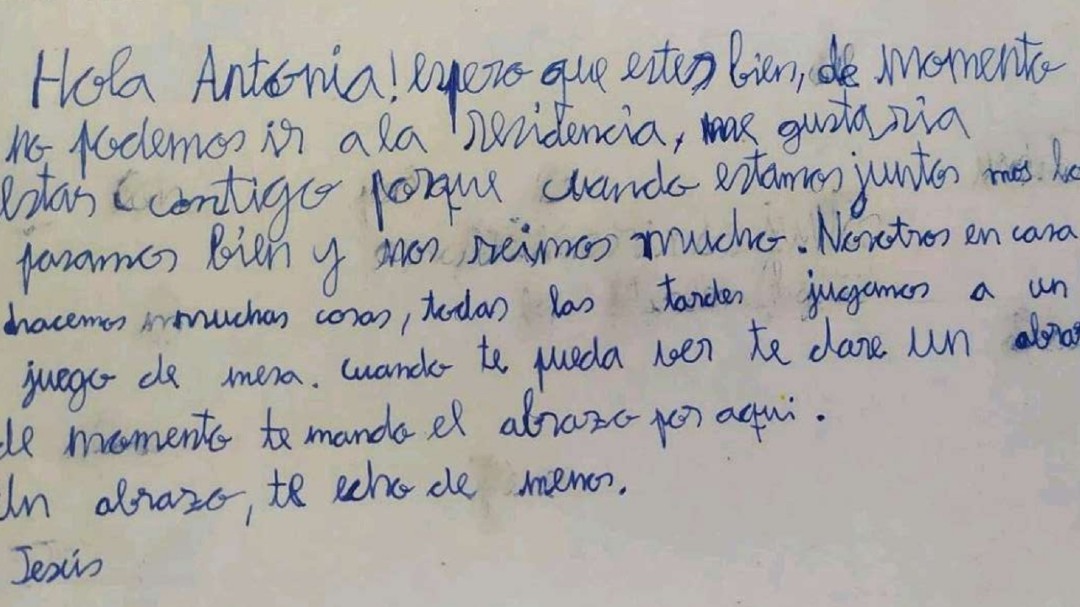 Hola Antonia! espero que estes bien, de momento
no podemos ir a la residencia, me gustaria
estar contigo porque cuando estamos juntos nos lo
pasamos bien y nos reimos mucho. Nosotros en casa
hacemos muchas cosas, todas las tardes jugamos a un
juego de mesa. cuando te pueda ver te dare un abraz
de momento te mando el abrazo por aqui.
Un abrazo, te echo de menos.
Jesús